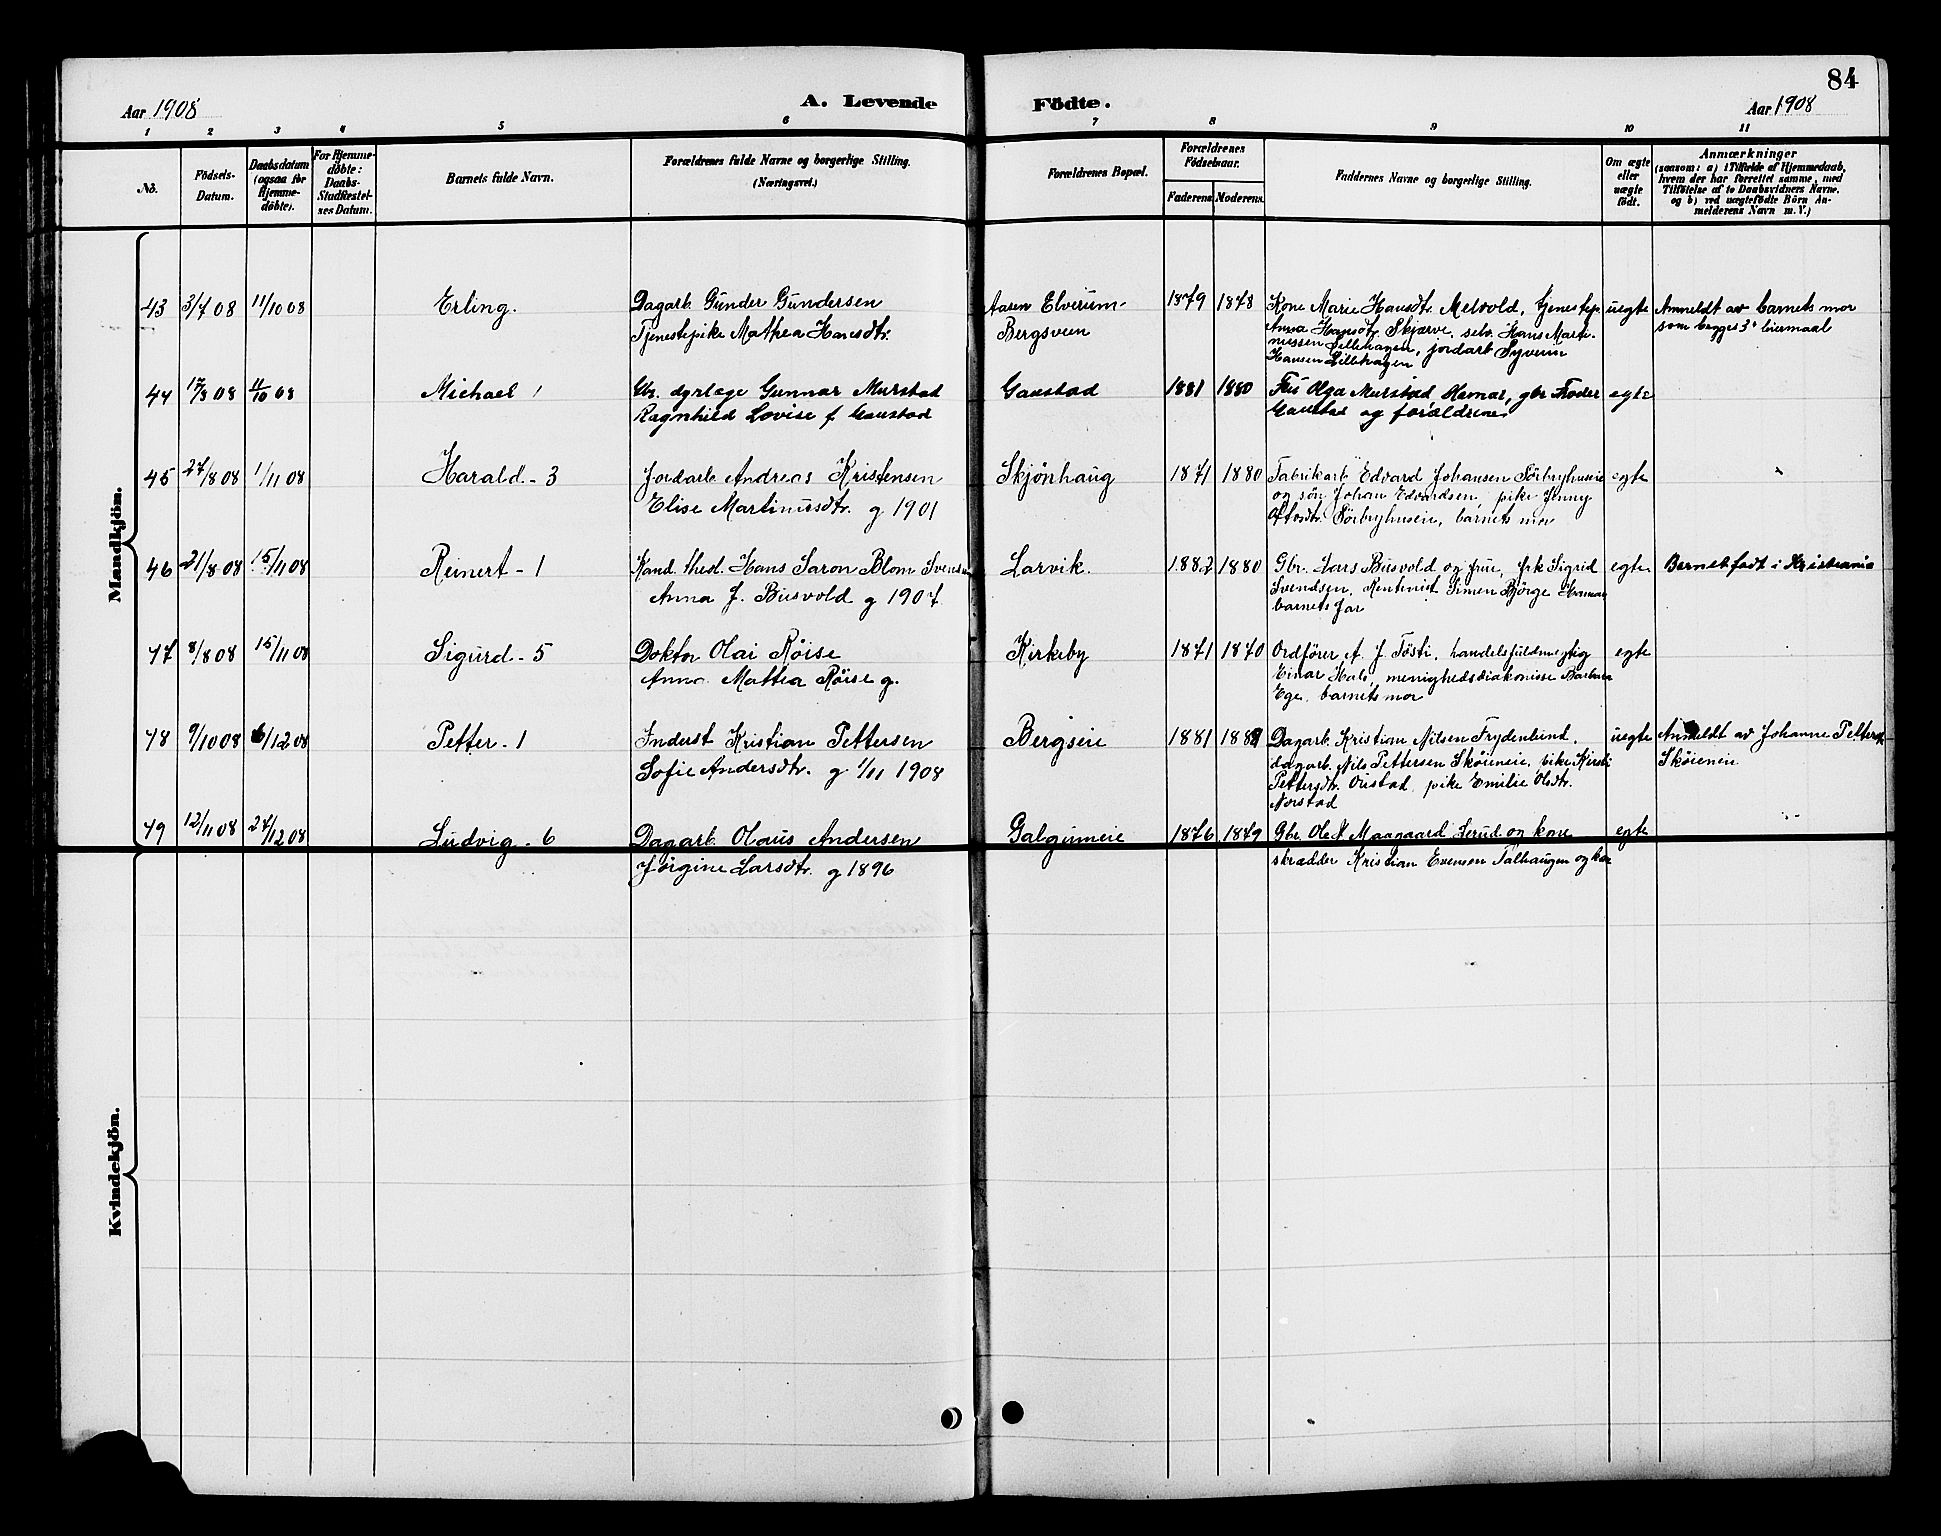 84
Aar 1908
A. Levende
Födte.
Aar 1908
1 2 3 4 5 6 7 8 9 10 11
No.
Födsels-
Datum.
Daabsdatum
(ogsaa for
Hjemme-
döbte).
For Hjemme-
döbte:
Daabs-
Stadfæstel-
ses Datum.
Barnets fulde Navn.
Forældrenes fulde Navne og borgerlige Stilling.
(Næringsvei.)
Forældrenes Bopæl.
Forældrenes
Födselsaar.
Faderens Moderens
Faddernes Navne og borgerlige Stilling.
Om ægte
eller
uægte
födt.
Anmærkninger
(saasom: a) i Tilfælde af Hjemmedaab,
hvem der har forrettet samme, med
Tilföielse af to Daabsvidners Navne.
og b) ved uægtefödte Börn An-
melderens Navn m. V.)
Mandkjön.
43 3/7 08 11/10 08 Erling.
Dagarb. Gunder Gundersen
Tjenestepike Mathea Hansdtr.
Aasen Elverum
Bergsveen
1879 1878
Kone Marie Hansdtr. Melvold, tjenestep.
Anna Hansdtr. Skjærve, selv. Hans Marti-
niussen Lillehagen, jordarb Syver
Hansen Lillehagen
uegte
Anmeldt av barnets mor
som begges 3' leiermaal
44 17/8 08 11/10 08 Michael 1
Gbr. dyrlæge Gunnar Murstad
Ragnhild Lovise f. Gaustad
Gaustad
1881 1880
Frk Olga Murstad Hamar, gbr
Gaustad og forældrene
egte
45 27/8 08 1/11 08 Harald - 3
Jordarb. Andreas Kristensen
Elise Martinusdtr. g 1901
Skjönhaug
1871 1880
Fabrikarb Edvard Johansen Sörbyhuseie
og sön Johan Edvardsen, pike Jenny
Sörbyhuseie, barnets mor
egte
46 21/8 08 15/11 08 Reinert - 1
Kand. theol. Hans Saron Blom Svendsen
Anna f. Busvold g 1907.
Larvik.
1882 1880
Gbr. Lars Busvold og frue, frk Sigrid
Svendsen, Rentenist Simen Björge Hamar
barnets far
egte
Barnet født i Kristiania
47 8/8 08 15/11 08 Sigurd - 5
Doktor Olai Röise
Anna Mathea Röise g.
Kirkeby
1871 1870
Ordförer A. J. Tösti, handelsfuldmegtig
Einar Hals, menighedsdiakonisse Barbara
Ege, barnets mor
egte
48 9/10 08 6/12 08 Petter - 1
Inderst Kristian Pettersen
Sofie Andersdtr. g 1/11 1908
Bergseie
1881 1889
Dagarb. Kristian Nilsen Frydenlund,
dagarb. Nils Pettersen Sköieneie, pike Kirsti
Pettersdtr. Oustad, pike Emilie Olsdtr.
Norstad
uegte
Anmeldt av Johanne Pettersdtr
Sköieneie
49 12/11 08 27/12 08 Ludvig - 6
Dagarb. Olaus Andersen
Jörgine Larsdtr. g 1896
Galgumeie
1876 1879
Gbr. Ole N Maagaard Serud og kone
skrædder Kristian Evensen Talhaugen og kone
egte
Kvindekjön.